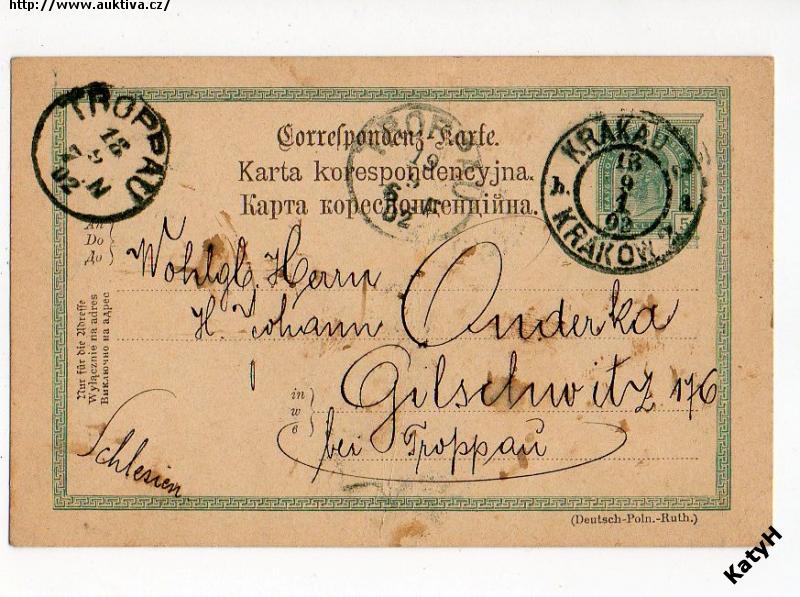 http://www.auktiva.cz/
TROPPAU
18
9
7.N
02
TROPPAU
19
9
6
02
Correspondenz-Karte.
Karta korespondencyjna.
Карта кореспонденційна.
KRAKAU
18
9
1
02
b.
KRAKÓW
5
An
Do
До
Wohlgb. Herrn
H. Johann Onderka
Gilschwitz 176
in
w
в
bei Troppau
Schlesien
Nur für die Adresse
Wyłącznie na adres
Виключно на адрес
(Deutsch-Poln.-Ruth.)
KatyH